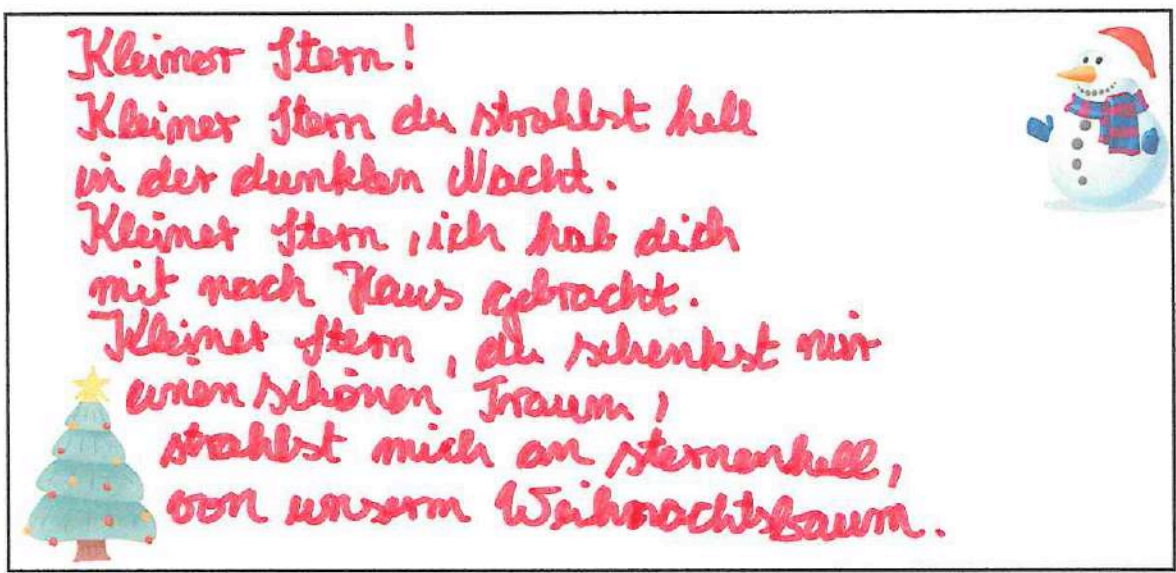 Kleiner Stern!
Kleiner Stern du strahlst hell
in der dunklen Nacht.
Kleiner Stern, ich hab dich
mit nach Haus gebracht.
Kleiner Stern, du schenkst mir
einen schönen Traum,
strahlst mich an sternenhell,
von unserm Weihnachtsbaum.